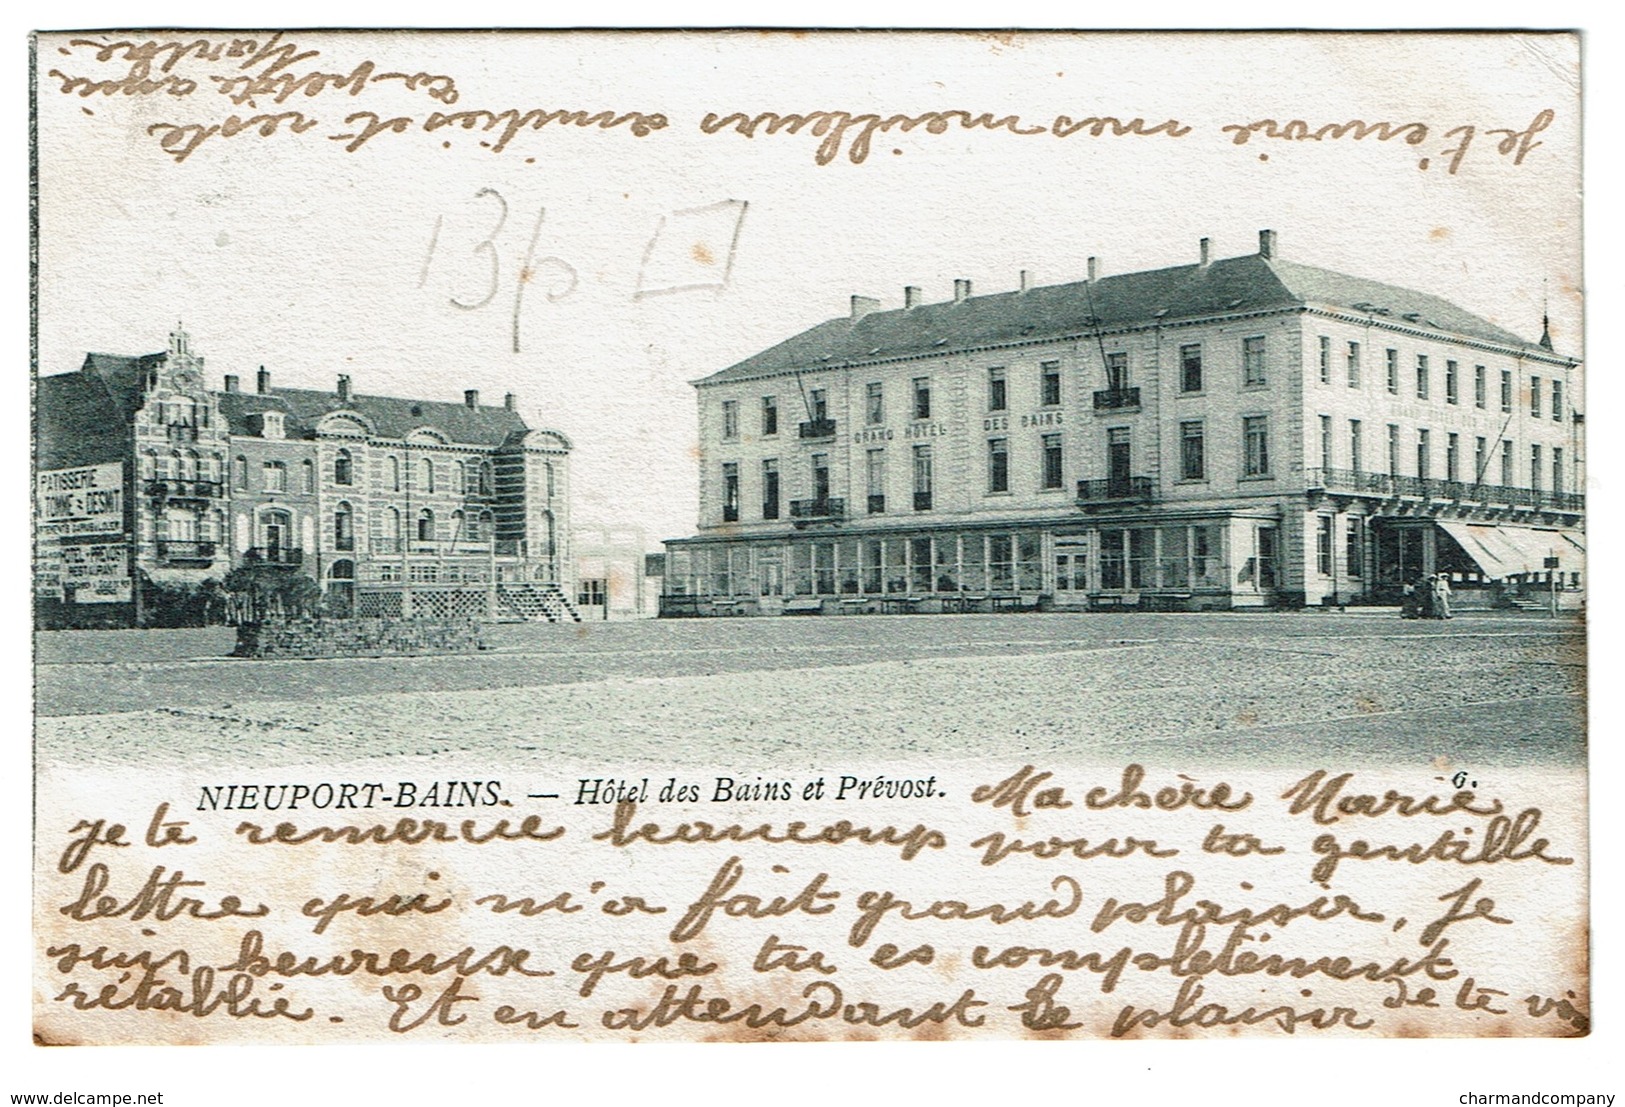 Je t'envoie mes meilleurs amitiés et reste
ta petite amie
Marthe.
13/p
PATISSERIE
TOMME & DESMIT
HÔTEL PRÉVOST
RESTAURANT
GRAND HÔTEL DES BAINS
NIEUPORT-BAINS. — Hôtel des Bains et Prévost. 6.
Ma chère Marie
Je te remercie beaucoup pour ta gentille
lettre qui m'a fait grand plaisir, Je
suis heureuse que tu es complètement
rétablie. Et en attendant le plaisir de te voir
delcampe.net
charmandcompany